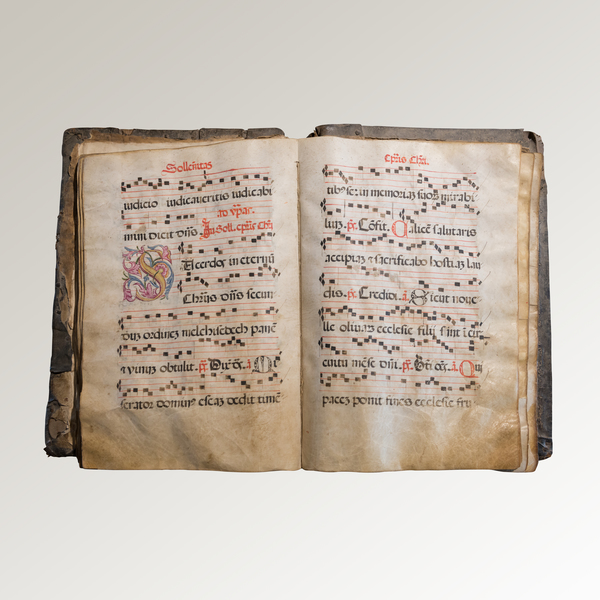 Sollemnitas
iudicio iudicaveritis iudicabi
ad vp̄as.
mini dicit dn̄s In Soll. cp̄us Chr̄i
Sacerdos in eternū
Chr̄us dn̄s secun
duz ordinez melchisedech panē
z vinuz obtulit. ps. Dixit. a. M
serator dominus escaz dedit timē
Cp̄us Chr̄i.
tibus se in memoriaz suoz mirabi
liuz. ps. Cōfit. a. Calicē salutaris
accipiaz z sacrificabo hostiaz lau
dis. ps. Credidi. a. Sicut nove
lle olivaz ecclesie filij sint in cir
cuitu mēse dn̄i. ps. a. Qui
pacez ponit fines ecclesie fru